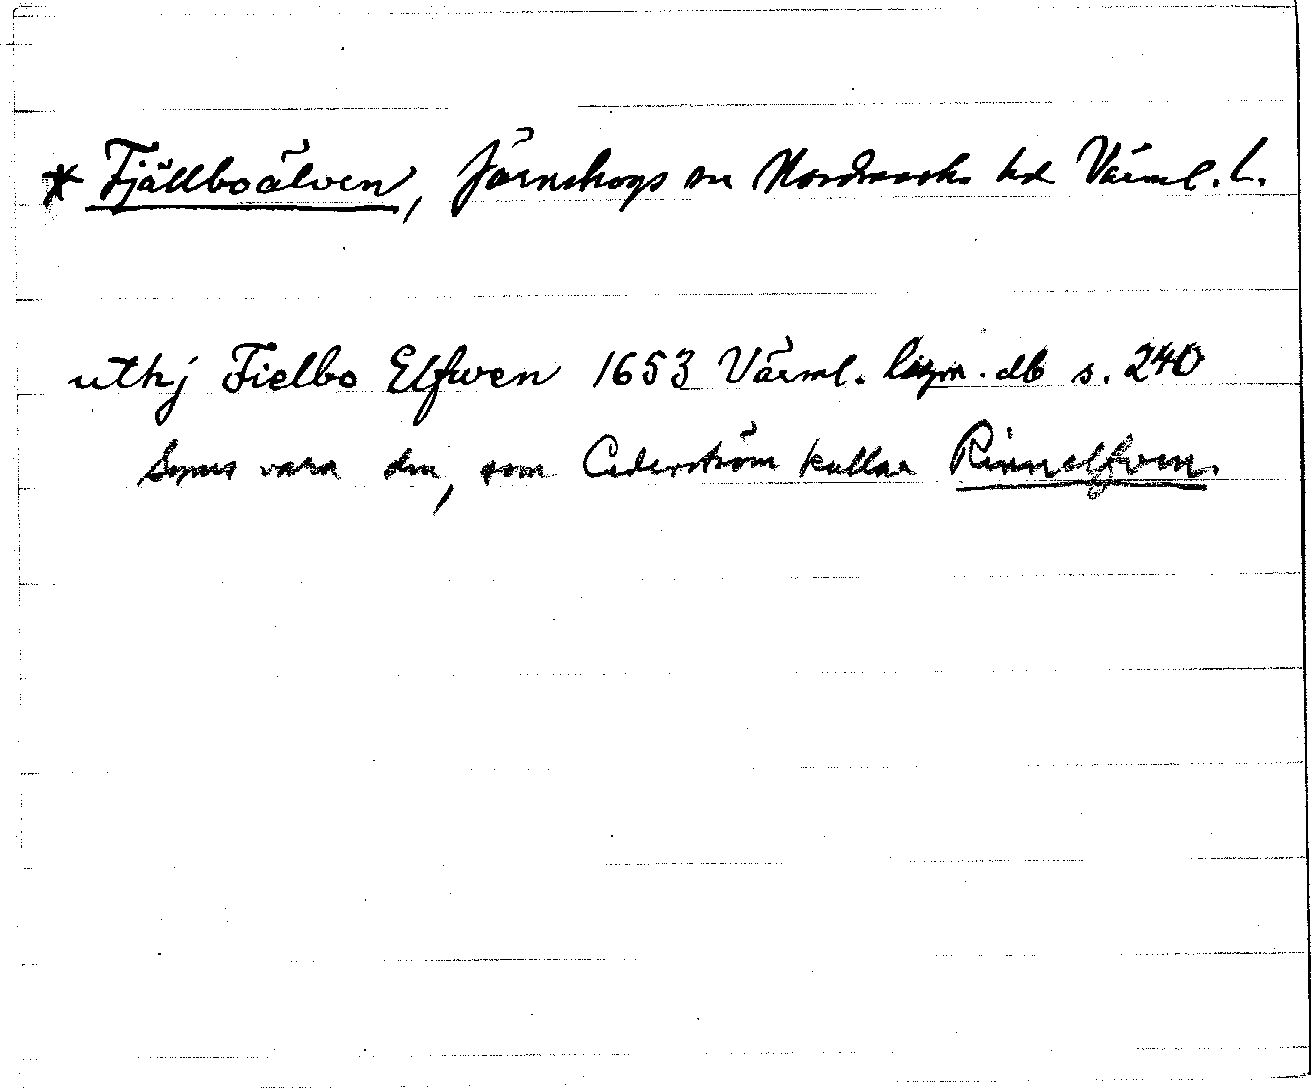 * Fjällboälven, Järnskogs sn Nordmarks hd Värml. l.
uthj Fielbo Elfwen 1653 Värml. lagm. db s. 240
Synes vara den, som Cederström kallar Rinnelfven.